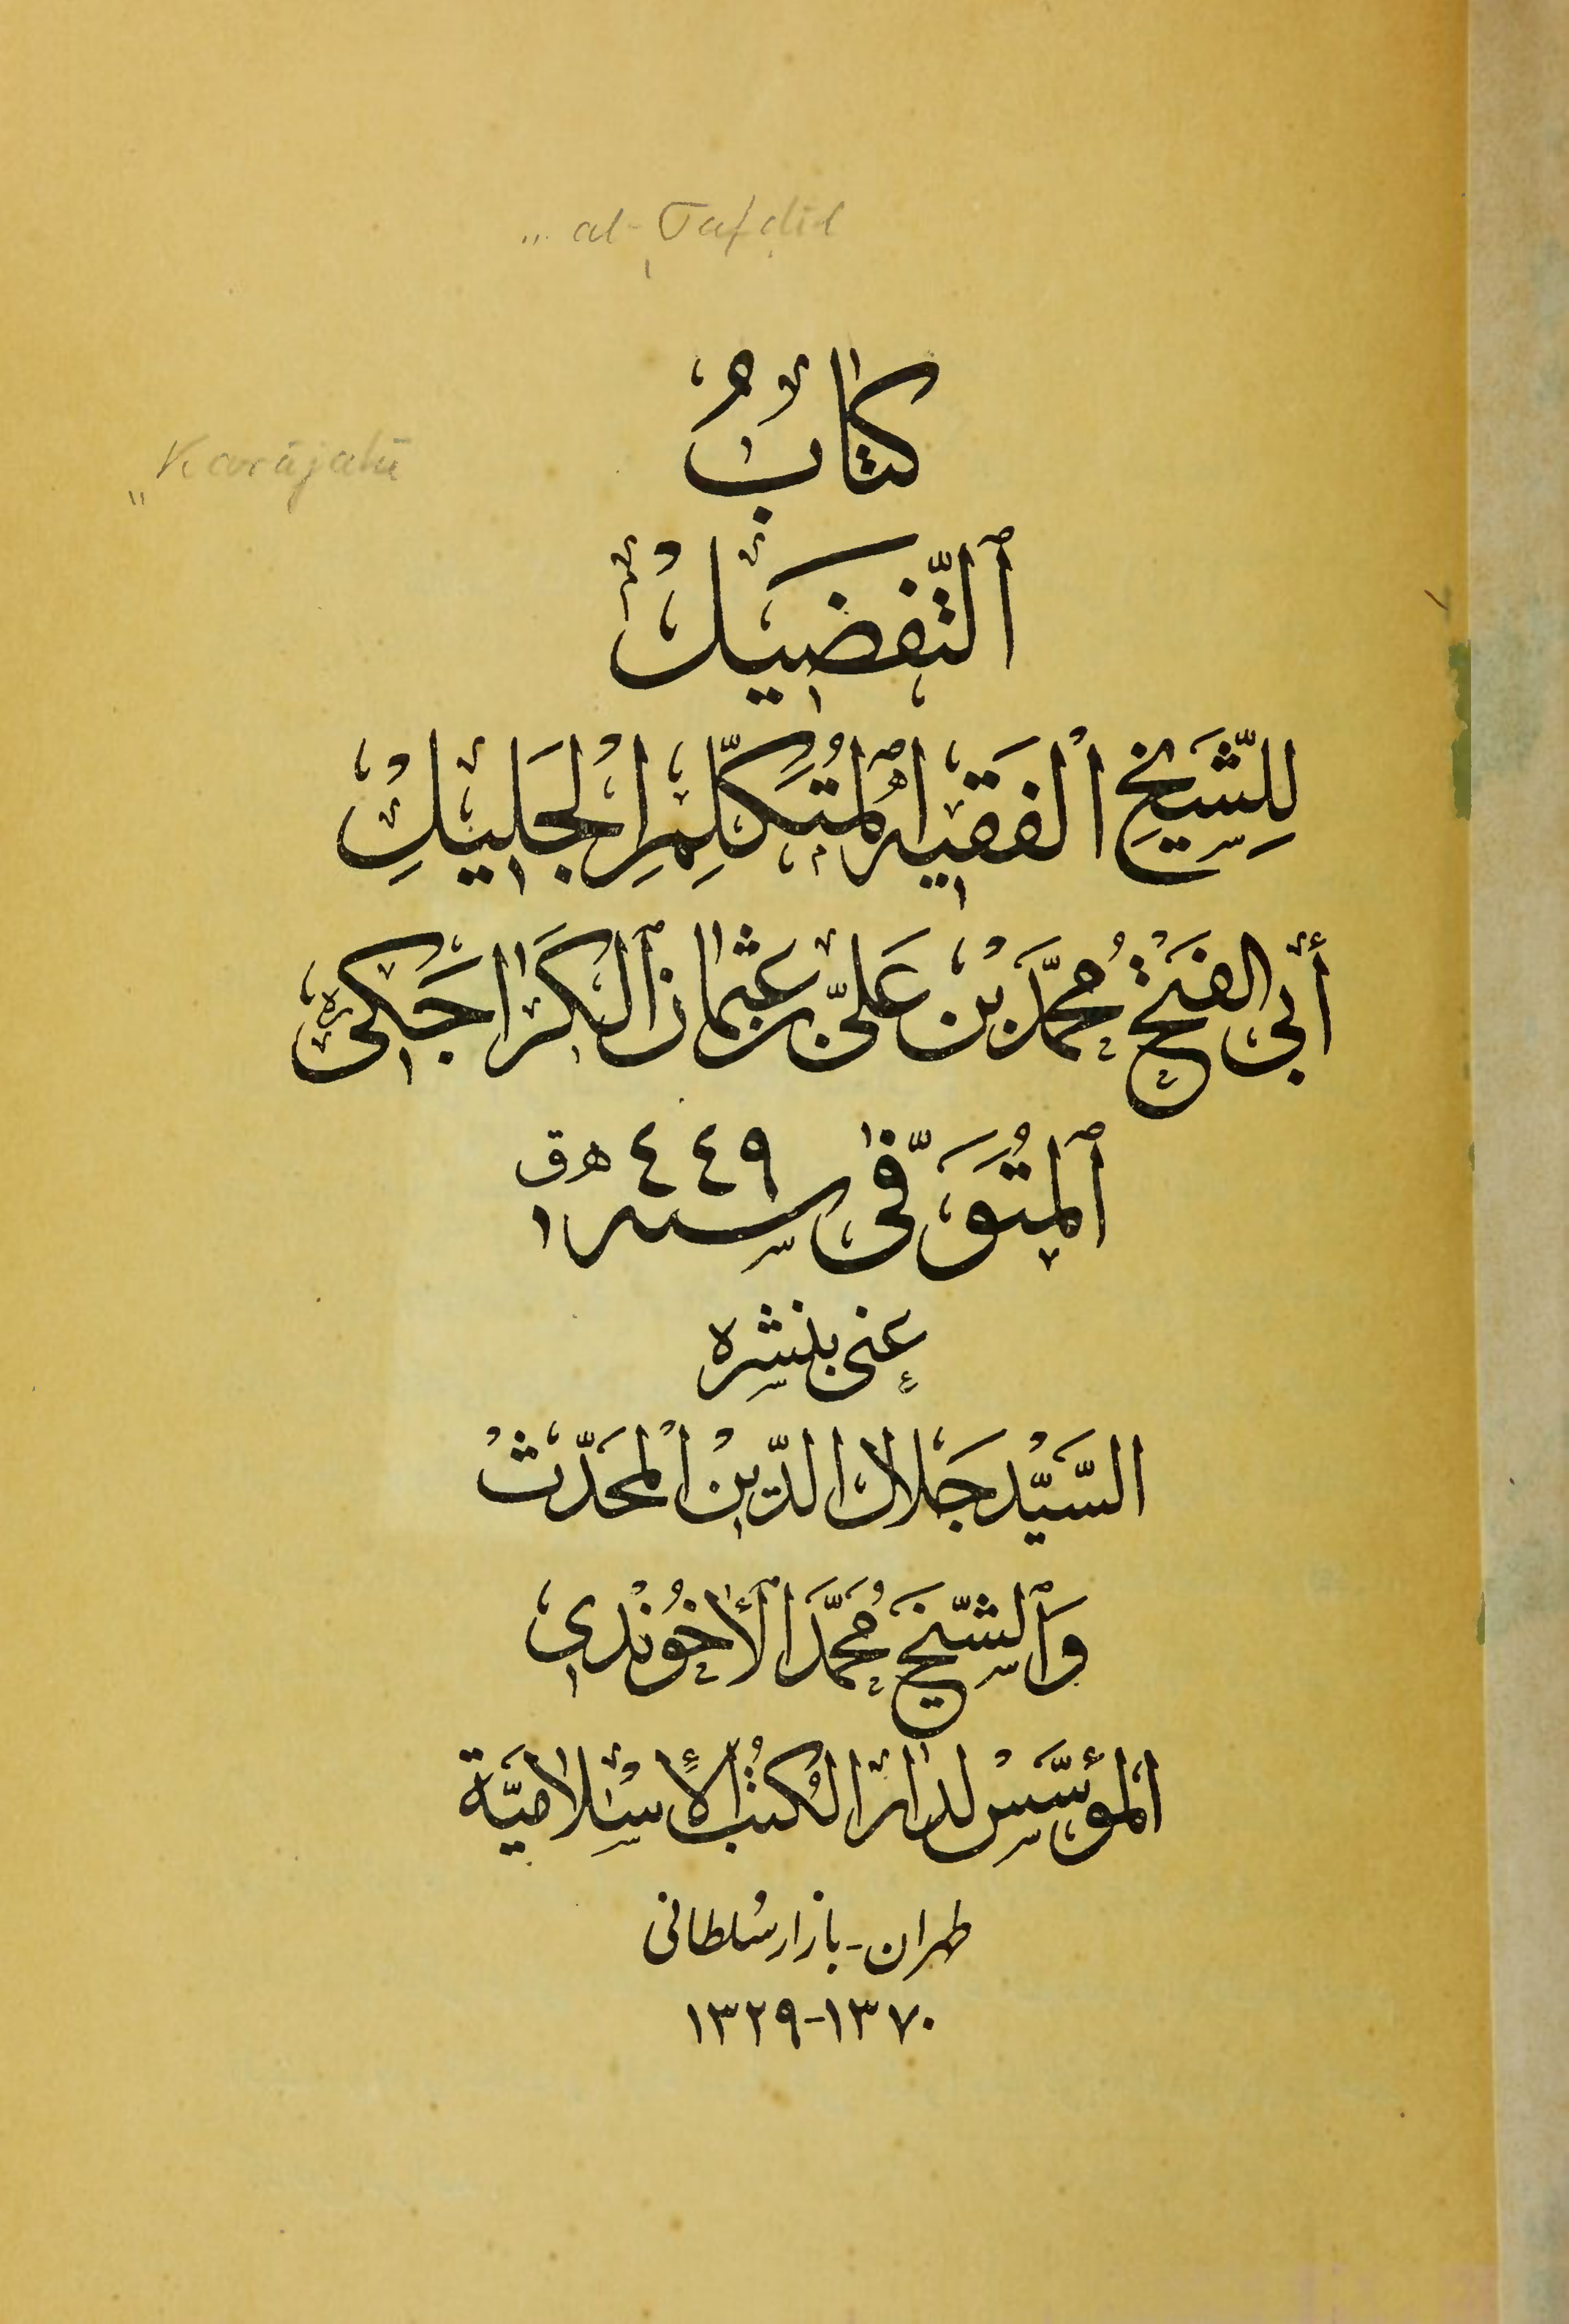 al-Tafḍīl
كِتابُ
Karājakī
ٱلتَّفضَيلْ
لِلشَّيخِ ٱلْفَقيهِ ٱلمُتَكَلِّمِ الْجَليلِ
أَبي الفَتْحِ مُحَمَّدَ بْن عَليّ بن عثمان ٱلكَراجَكىّ ره
ٱلمُتَوَفّىٰ سنه ٤٤٩ هق
عنى بنشره
السَّيِّد جَلال الدّين الْمحَدّثْ
وَٱلشّيخ مُحَمَّد ٱلأخُوندى
المؤَسَّسْ لدار الكُتُب الإسْلاميَّة
طهران - بازار سُلطانى
١٣٧٠-١٣٢٩